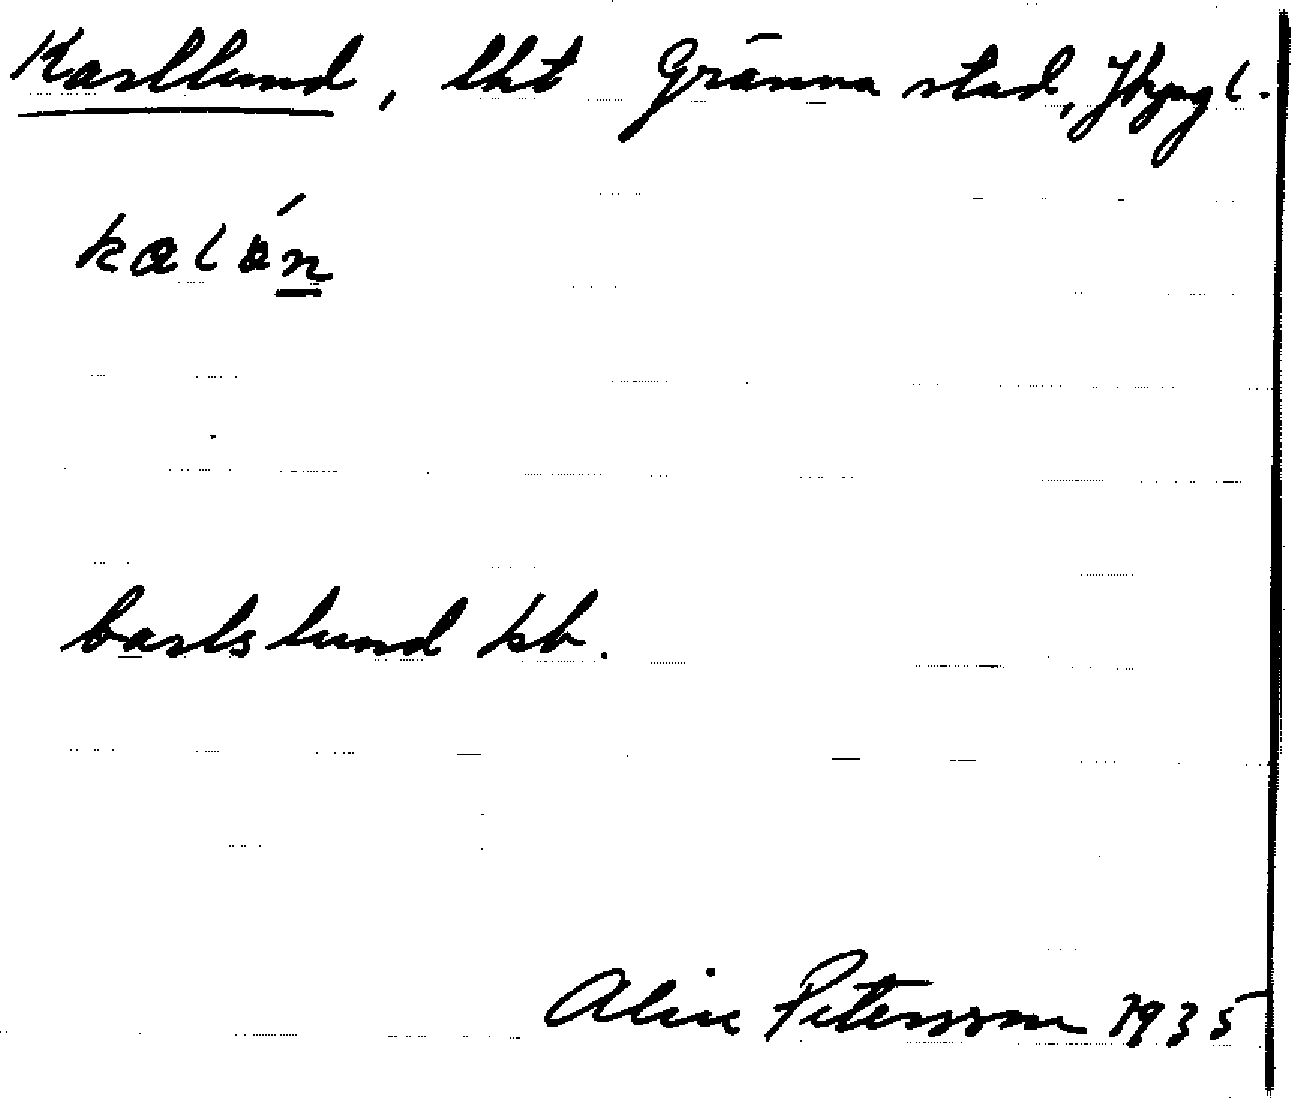 Karllund, lht Gränna stad, Jkpgl.
Carlslund kb.
Alice Petersson 1935